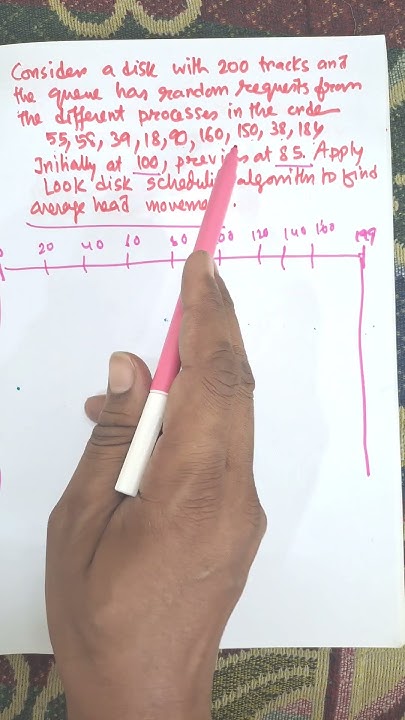 Consider a disk with 200 tracks and
the queue has random requests from
the different processes in the order
55, 58, 39, 18, 90, 160, 150, 38, 184
Initially at 100, previous at 85. Apply
Look disk scheduling algorithm to find
average head movement.
20 40 60 80 100 120 140 160 199